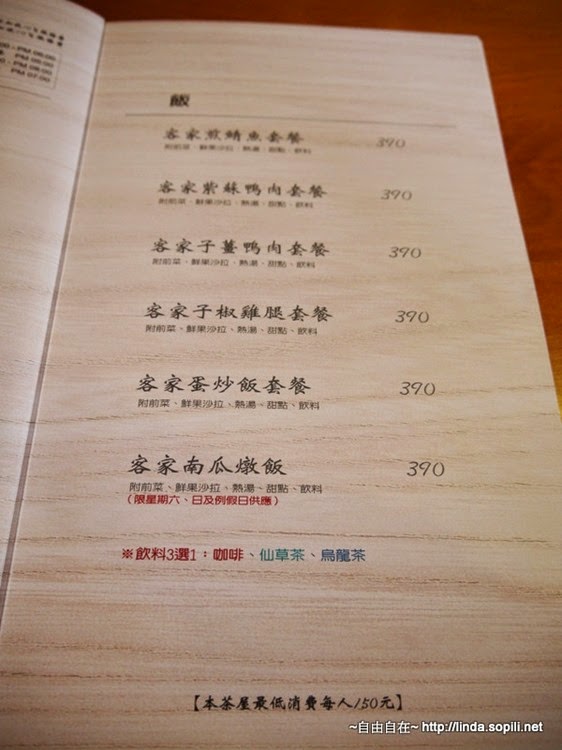 PM 05:00
PM 06:00
PM 07:00
飯
客家煎鯖魚套餐 390
附前菜、鮮果沙拉、熱湯、甜點、飲料
客家紫蘇鴨肉套餐 390
附前菜、鮮果沙拉、熱湯、甜點、飲料
客家子薑鴨肉套餐 390
附前菜、鮮果沙拉、熱湯、甜點、飲料
客家子椒雞腿套餐 390
附前菜、鮮果沙拉、熱湯、甜點、飲料
客家蛋炒飯套餐 390
附前菜、鮮果沙拉、熱湯、甜點、飲料
客家南瓜燉飯 390
附前菜、鮮果沙拉、熱湯、甜點、飲料
(限星期六、日及例假日供應)
※飲料3選1：咖啡、仙草茶、烏龍茶
【本茶屋最低消費每人150元】
~自由自在~ http://linda.sopili.net